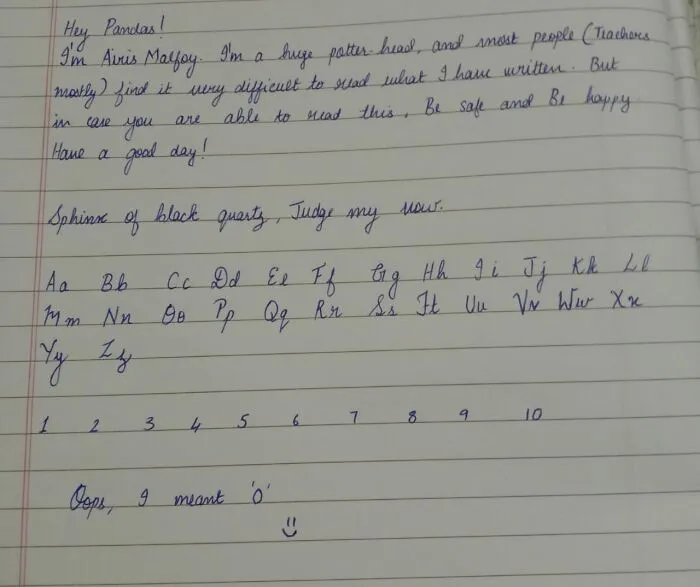 Hey Pandas!
I'm Airis Malfoy. I'm a huge potter-head, and most people (Teachers
mostly) find it very difficult to read what I have written. But
in case you are able to read this, Be safe and Be happy
Have a good day!
Sphinx of black quartz, Judge my vow.
Aa Bb Cc Dd Ee Ff Gg Hh Ii Jj Kk Ll
Mm Nn Oo Pp Qq Rr Ss Tt Uu Vv Ww Xx
Yy Zz
1 2 3 4 5 6 7 8 9 10
Oops, I meant '0'